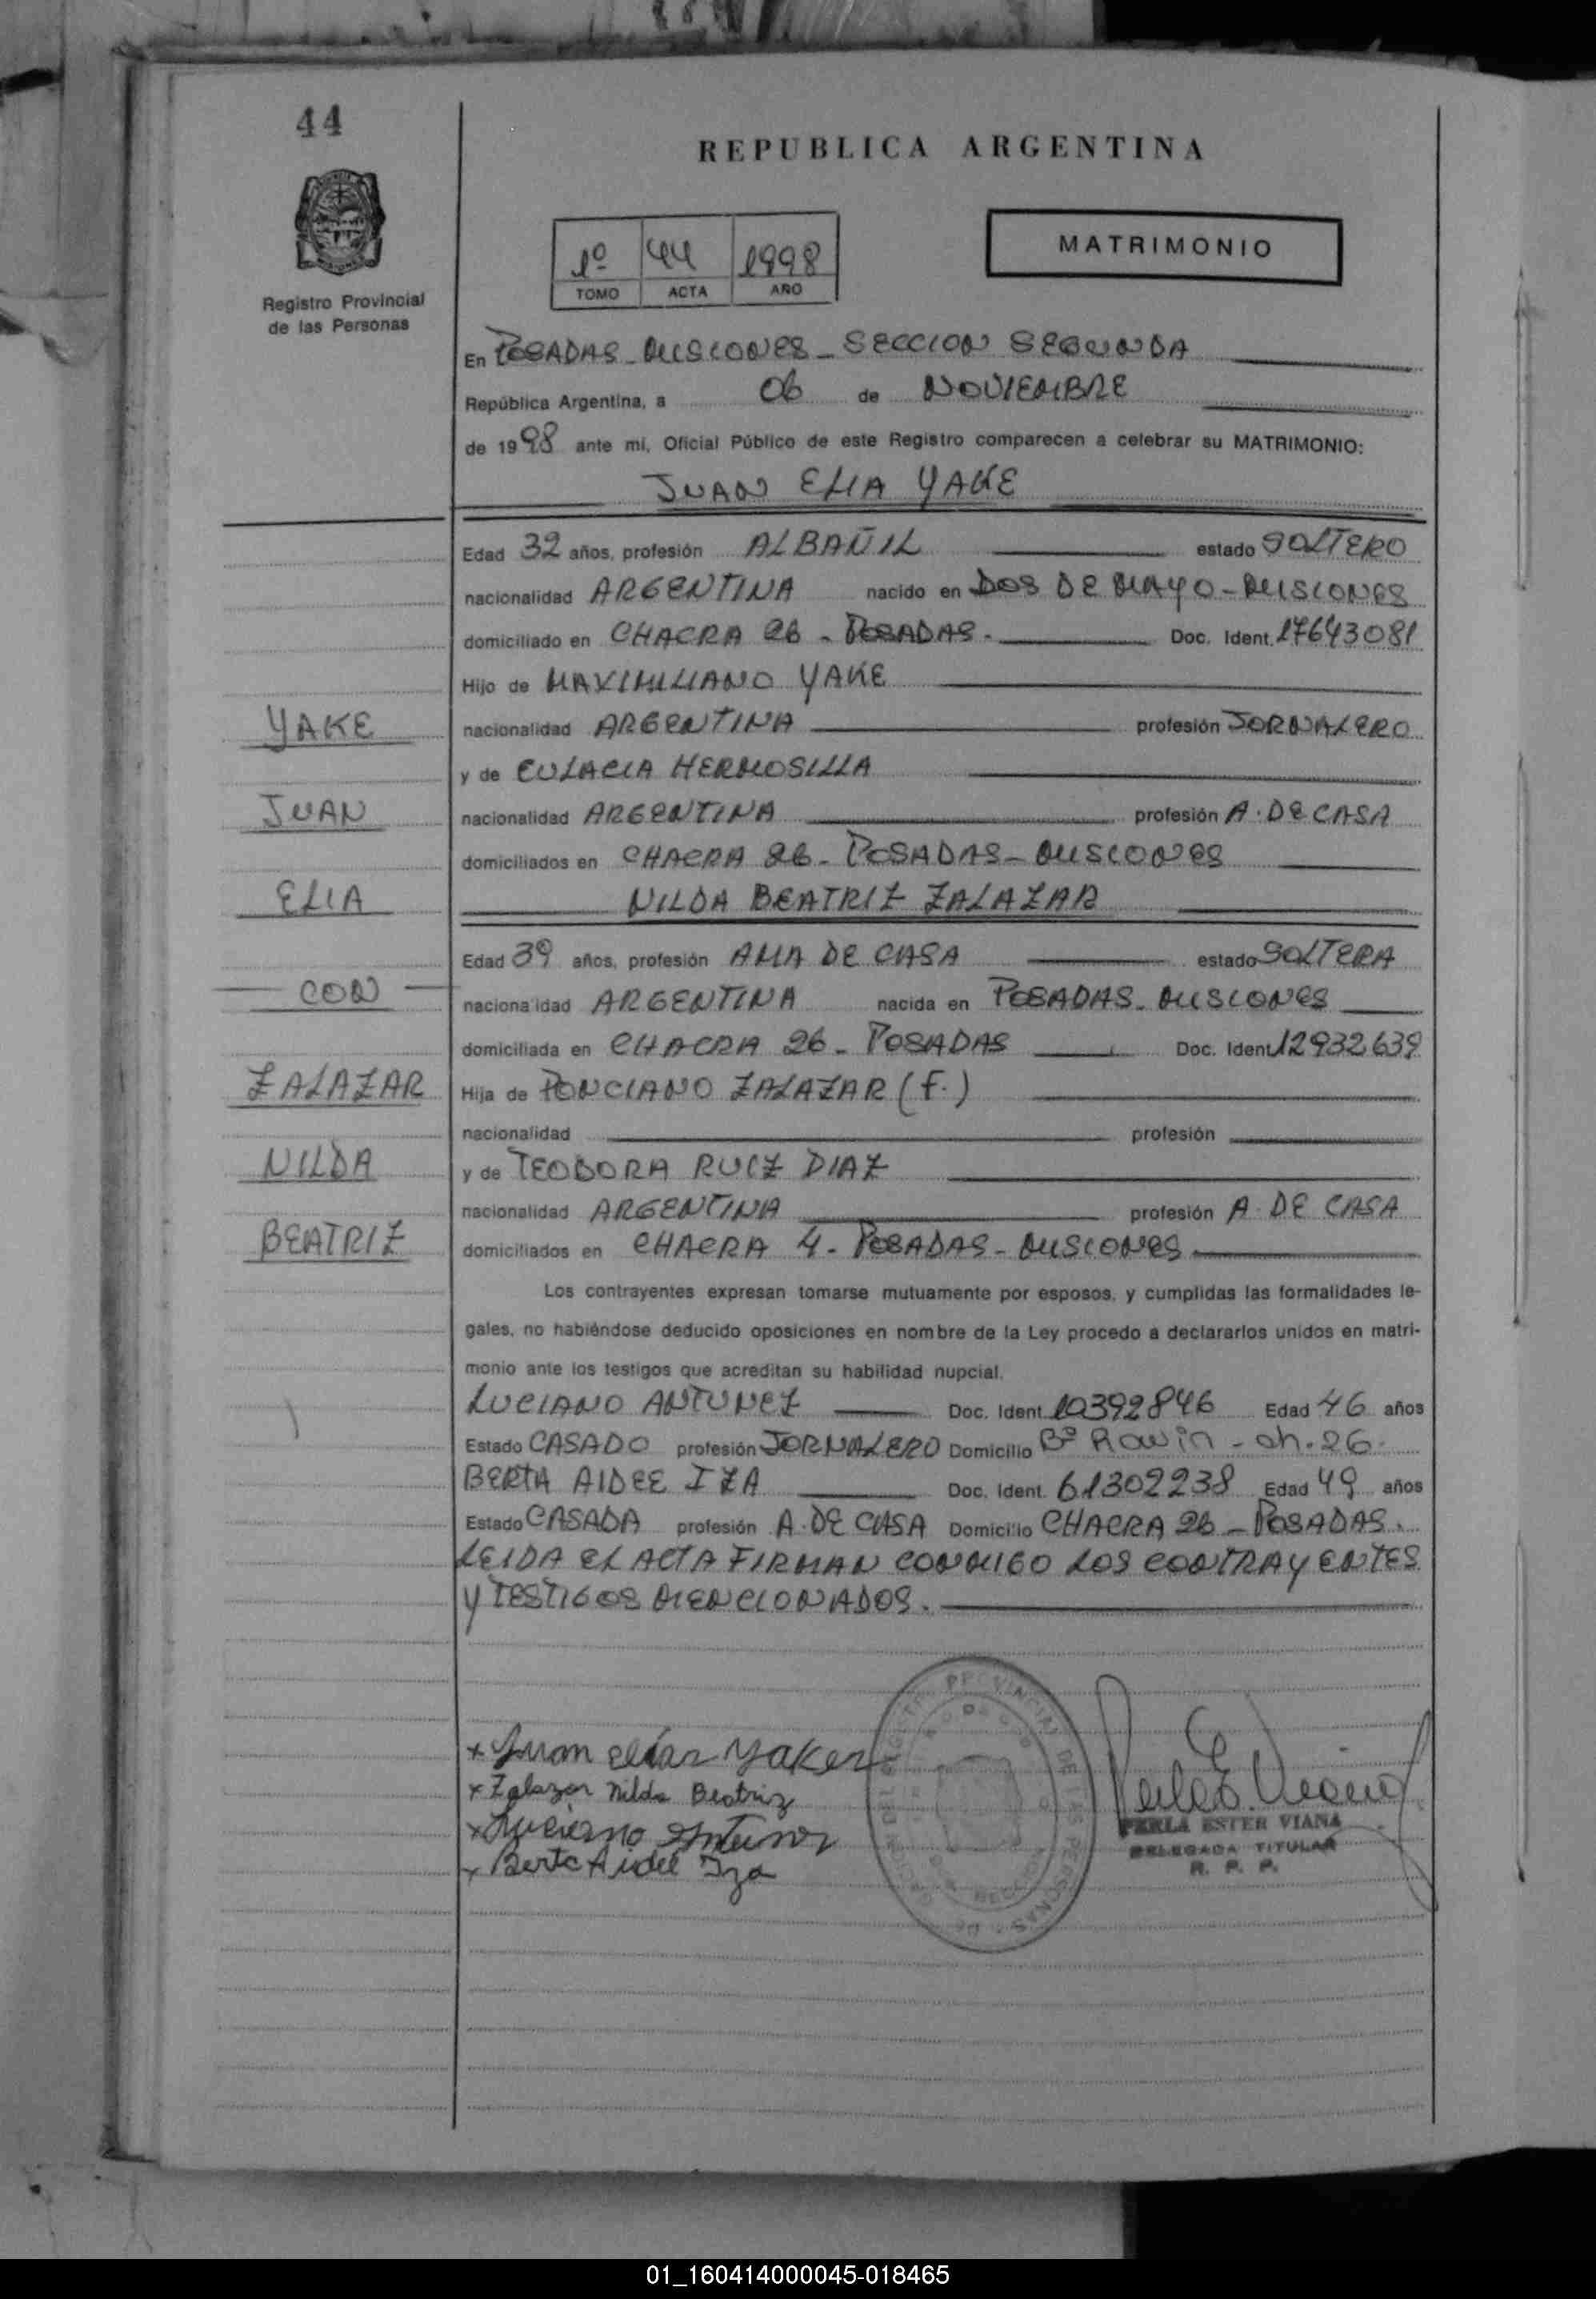 44
REPUBLICA ARGENTINA
Registro Provincial
de las Personas
1º 44 1998
TOMO ACTA AÑO
MATRIMONIO
En POSADAS - MISIONES - SECCION SEGUNDA
República Argentina, a 06 de NOVIEMBRE
de 1998 ante mi, Oficial Público de este Registro comparecen a celebrar su MATRIMONIO:
JUAN ELIA YAKE
Edad 32 años, profesión ALBAÑIL estado SOLTERO
nacionalidad ARGENTINA nacido en DOS DE MAYO - MISIONES
domiciliado en CHACRA 26 - POSADAS - Doc. Ident. 17643081
Hijo de MAXIMILIANO YAKE
YAKE
nacionalidad ARGENTINA profesión JORNALERO
y de EULACIA HERMOSILLA
JUAN
nacionalidad ARGENTINA profesión A. DE CASA
domiciliados en CHACRA 26 - POSADAS - MISIONES
ELIA
NILDA BEATRIZ ZALAZAR
Edad 39 años, profesión AMA DE CASA estado SOLTERA
CON
nacionalidad ARGENTINA nacida en POSADAS - MISIONES
domiciliada en CHACRA 26 - POSADAS Doc. Ident. 12932639
ZALAZAR
Hija de PONCIANO ZALAZAR (F.)
nacionalidad profesión
NILDA
y de TEODORA RUIZ DIAZ
nacionalidad ARGENTINA profesión A. DE CASA
BEATRIZ
domiciliados en CHACRA 4 - POSADAS - MISIONES
Los contrayentes expresan tomarse mutuamente por esposos, y cumplidas las formalidades le-
gales, no habiéndose deducido oposiciones en nombre de la Ley procedo a declararlos unidos en matri-
monio ante los testigos que acreditan su habilidad nupcial.
LUCIANO ANTUNEZ Doc. Ident. 10392846 Edad 46 años
Estado CASADO profesión JORNALERO Domicilio Bº Rowin - ch. 26.
BERTA AIDEE IZA Doc. Ident. 61302238 Edad 49 años
Estado CASADA profesión A. DE CASA Domicilio CHACRA 26 - POSADAS.
LEIDA EL ACTA FIRMAN CONMIGO LOS CONTRAYENTES
Y TESTIGOS MENCIONADOS.
x Juan elias Yaker
x Zalazar Nilda Beatriz
x Luciano Antunez
x Berta Aidee Iza
PERLA ESTER VIANA
DELEGADA TITULAR
R. P. P.
01_160414000045-018465